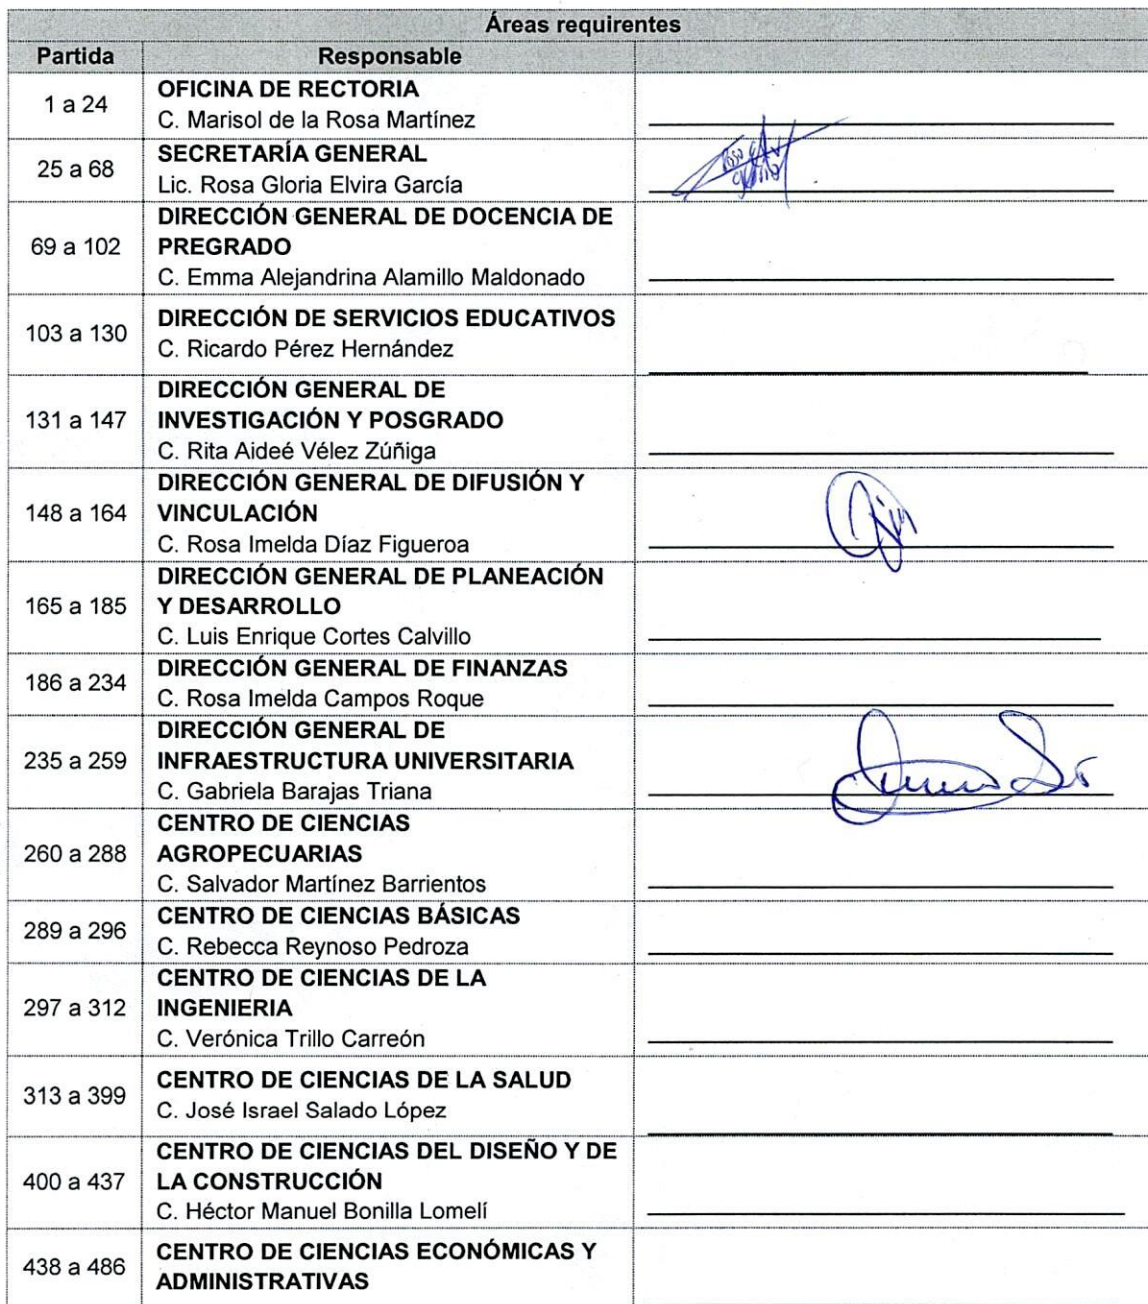 Áreas requirentes
Partida Responsable
1 a 24
OFICINA DE RECTORIA
C. Marisol de la Rosa Martínez
25 a 68
SECRETARÍA GENERAL
Lic. Rosa Gloria Elvira García
69 a 102
DIRECCIÓN GENERAL DE DOCENCIA DE
PREGRADO
C. Emma Alejandrina Alamillo Maldonado
103 a 130
DIRECCIÓN DE SERVICIOS EDUCATIVOS
C. Ricardo Pérez Hernández
131 a 147
DIRECCIÓN GENERAL DE
INVESTIGACIÓN Y POSGRADO
C. Rita Aideé Vélez Zúñiga
148 a 164
DIRECCIÓN GENERAL DE DIFUSIÓN Y
VINCULACIÓN
C. Rosa Imelda Díaz Figueroa
165 a 185
DIRECCIÓN GENERAL DE PLANEACIÓN
Y DESARROLLO
C. Luis Enrique Cortes Calvillo
186 a 234
DIRECCIÓN GENERAL DE FINANZAS
C. Rosa Imelda Campos Roque
235 a 259
DIRECCIÓN GENERAL DE
INFRAESTRUCTURA UNIVERSITARIA
C. Gabriela Barajas Triana
260 a 288
CENTRO DE CIENCIAS
AGROPECUARIAS
C. Salvador Martínez Barrientos
289 a 296
CENTRO DE CIENCIAS BÁSICAS
C. Rebecca Reynoso Pedroza
297 a 312
CENTRO DE CIENCIAS DE LA
INGENIERIA
C. Verónica Trillo Carreón
313 a 399
CENTRO DE CIENCIAS DE LA SALUD
C. José Israel Salado López
400 a 437
CENTRO DE CIENCIAS DEL DISEÑO Y DE
LA CONSTRUCCIÓN
C. Héctor Manuel Bonilla Lomelí
438 a 486
CENTRO DE CIENCIAS ECONÓMICAS Y
ADMINISTRATIVAS